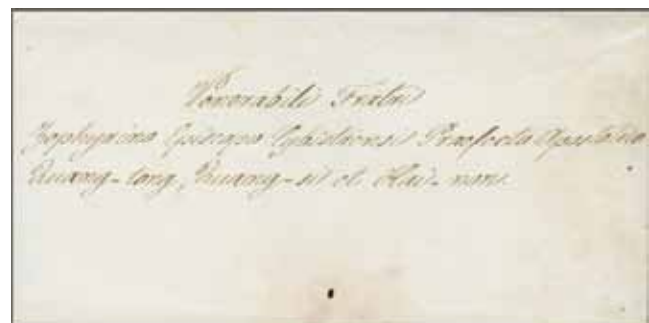 Venerabili Fratri
Zephyrino Episcopo Cybistrensi Praefecto Apostolico
Quang-tong, Quang-si et Hai-nan.